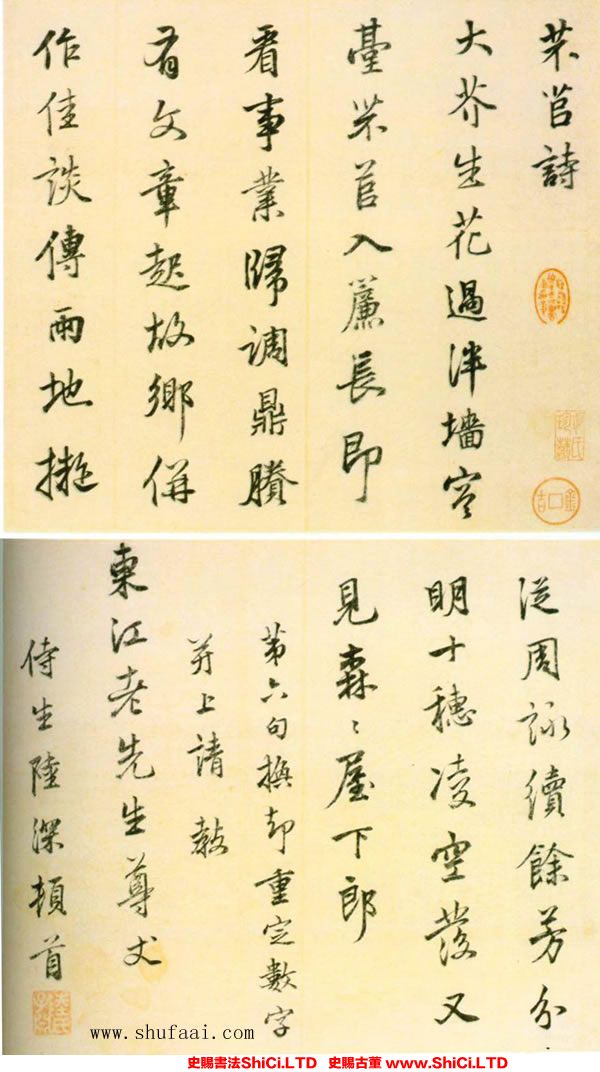 芣苢詩
大芥生花過泮墻
臺芣苢入簾長即
看事業歸調鼎賸
有文章起故鄉併
作佳談傳兩地擬
從周詠續餘芳分
明十穗凌空發又
見森〻屋下郎
第六句却重定數字
并上請教
東江老先生尊丈
侍生陸深頓首
www.shufaai.com
史賜書法ShiCi.LTD 史賜古董 www.ShiCi.LTD